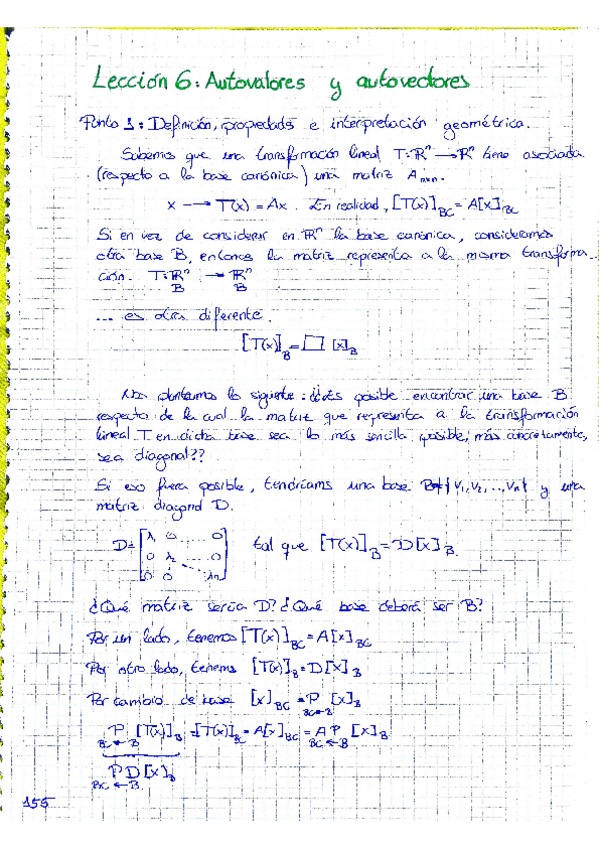 Lección 6: Autovalores y autovectores
Punto 1: Definición, propiedades e interpretación geométrica.
Sabemos que una transformación lineal T:ℝⁿ→ℝⁿ tiene asociada
(respecto a la base canónica) una matriz Aₙₓₙ.
x → T(x) = Ax. En realidad, [T(x)]_BC = A[x]_BC
Si en vez de considerar en ℝⁿ la base canónica, consideramos
otra base B, entonces la matriz representa a la misma transforma-
ción. T:ℝⁿ → ℝⁿ
B B
... es otra diferente.
[T(x)]_B = □ [x]_B
Nos planteamos lo siguiente: ¿¿es posible encontrar una base B
respecto de la cual la matriz que representa a la transformación
lineal T en dicha base sea lo más sencilla posible, más concretamente,
sea diagonal??
Si eso fuera posible, tendríams una base B={v₁,v₂,...,vₙ} y una
matriz diagonal D.
D=[λ₁ 0 ..... 0
0 λ₂ ..... 0
0 0 ... λₙ] tal que [T(x)]_B = D[x]_B
¿Qué matriz sería D? ¿Qué base deberá ser B?
Por un lado, tenemos [T(x)]_BC = A[x]_BC
Por otro lado, tenems [T(x)]_B = D[x]_B
Por cambio de base [x]_BC = P_BC←B [x]_B
P_BC←B [T(x)]_B = [T(x)]_BC = A[x]_BC = A P_BC←B [x]_B
P_BC←B D[x]_B
155